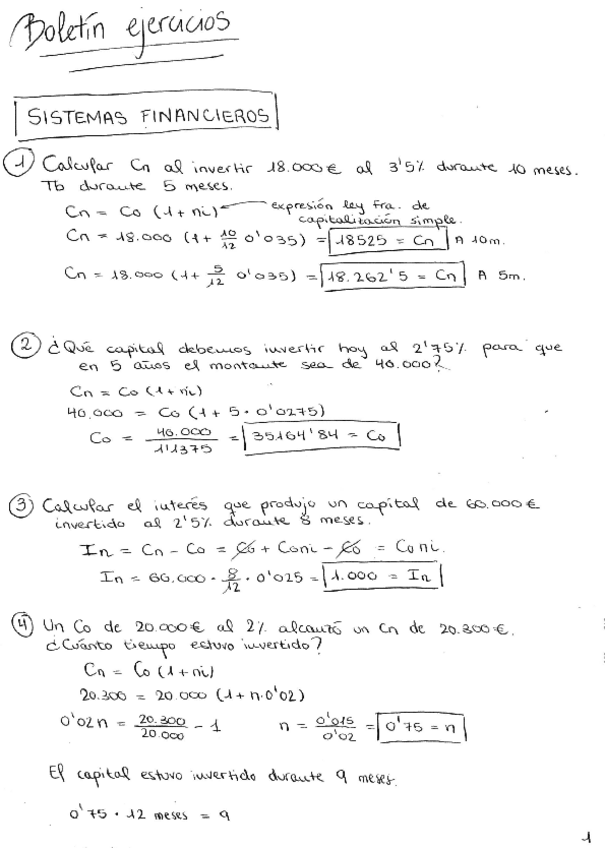 Boletín ejercicios
SISTEMAS FINANCIEROS
1 Calcular Cn al invertir 18.000€ al 3'5% durante 10 meses.
Tb durante 5 meses.
Cn = Co (1+ni) ← expresión ley fra. de
capitalización simple.
Cn = 18.000 (1+ 10/12 0'035) = 18525 = Cn A 10m.
Cn = 18.000 (1+ 5/12 0'035) = 18.262'5 = Cn A 5m.
2 ¿Qué capital debemos invertir hoy al 2'75% para que
en 5 años el montante sea de 40.000?
Cn = Co (1+ni)
40.000 = Co (1+5·0'0275)
Co = 40.000/1'1375 = 35164'84 = Co
3 Calcular el interés que produjo un capital de 60.000€
invertido al 2'5% durante 8 meses.
In = Cn - Co = Co + Coni - Co = Coni.
In = 60.000 · 8/12 · 0'025 = 1.000 = In
4 Un Co de 20.000€ al 2% alcanzó un Cn de 20.300€.
¿Cuánto tiempo estuvo invertido?
Cn = Co (1+ni)
20.300 = 20.000 (1+n·0'02)
0'02n = 20.300/20.000 - 1 n = 0'015/0'02 = 0'75 = n
El capital estuvo invertido durante 9 meses.
0'75 · 12 meses = 9
1